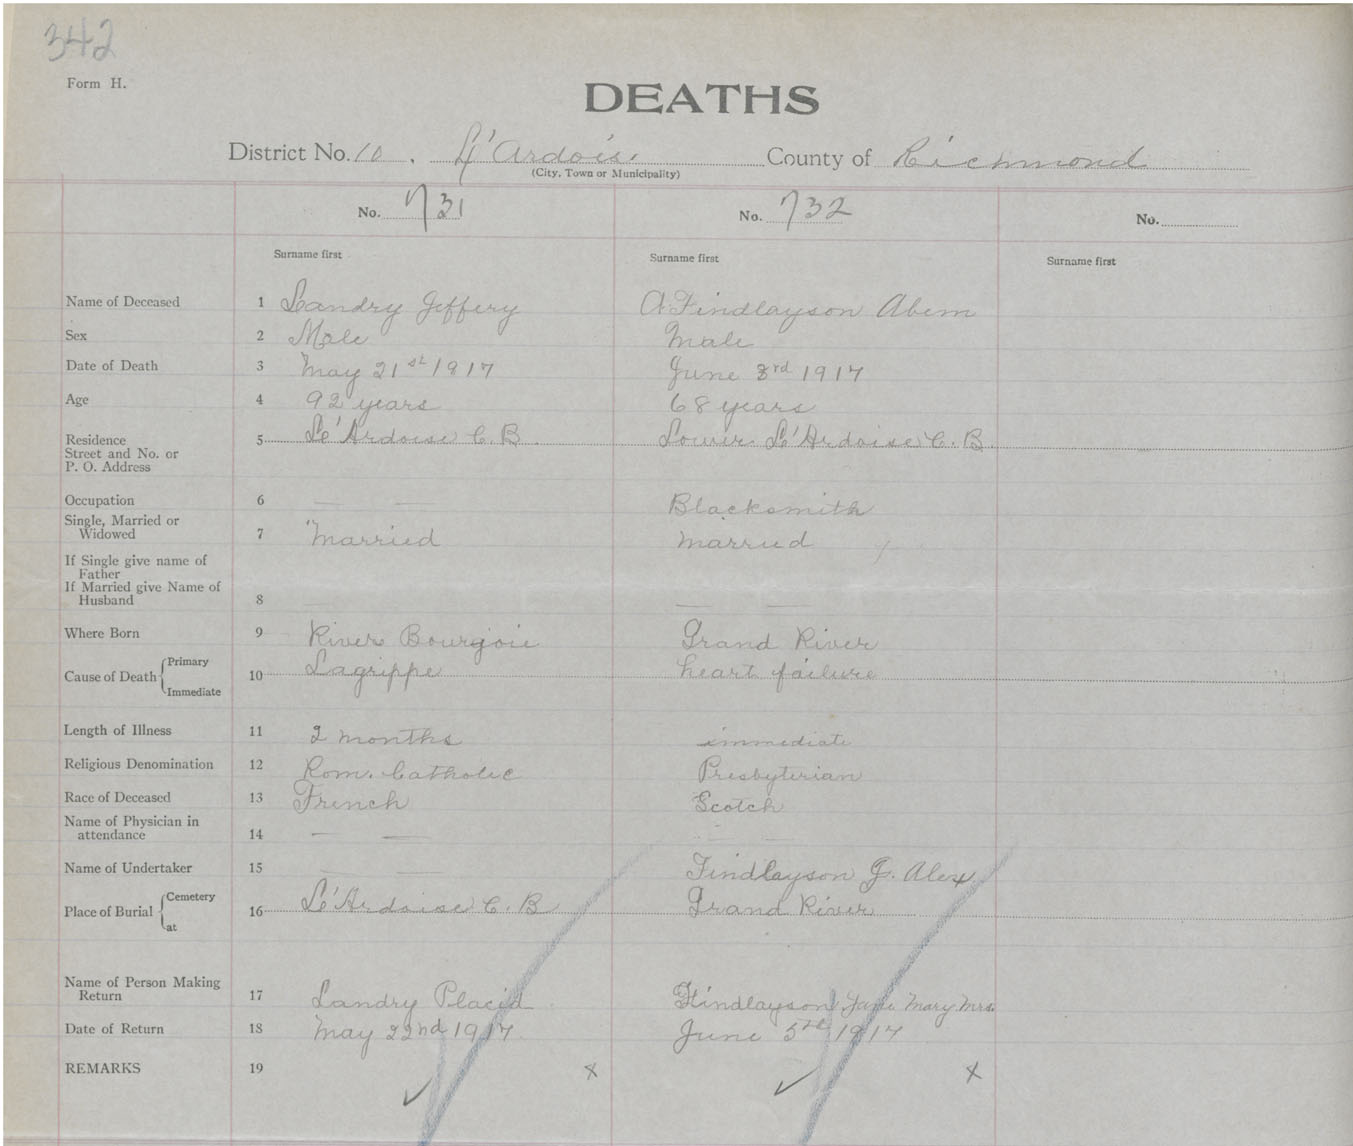 342
Form H.
DEATHS
District No. 10. L'Ardois. County of Richmond
(City, Town or Municipality)
No. 731 No. 732 No.
Surname first Surname first Surname first
Name of Deceased 1 Landry Jeffery A Findlayson Abem
Sex 2 Male Male
Date of Death 3 May 21st 1917 June 3rd 1917
Age 4 92 years 68 years
Residence 5 Le'Ardoise C.B. Lower L'Ardoise C.B
Street and No. or
P. O. Address
Occupation 6 — — Blacksmith
Single, Married or
Widowed 7 Married married
If Single give name of
Father
If Married give Name of
Husband 8 — — —
Where Born 9 River Bourgoie Grand River
Cause of Death Primary
10 Lagrippe heart failure
Immediate
Length of Illness 11 2 months immediate
Religious Denomination 12 Rom. Catholic Presbyterian
Race of Deceased 13 French Scotch
Name of Physician in
attendance 14 — —
Name of Undertaker 15 — — Findlayson J. Alex.
Place of Burial Cemetery
16 Le'Ardoise C.B Grand River
at
Name of Person Making
Return 17 Landry Placid Findlayson Jane Mary Mrs.
Date of Return 18 May 22nd 1917. June 5th 1917
REMARKS 19 ✓ x ✓ x